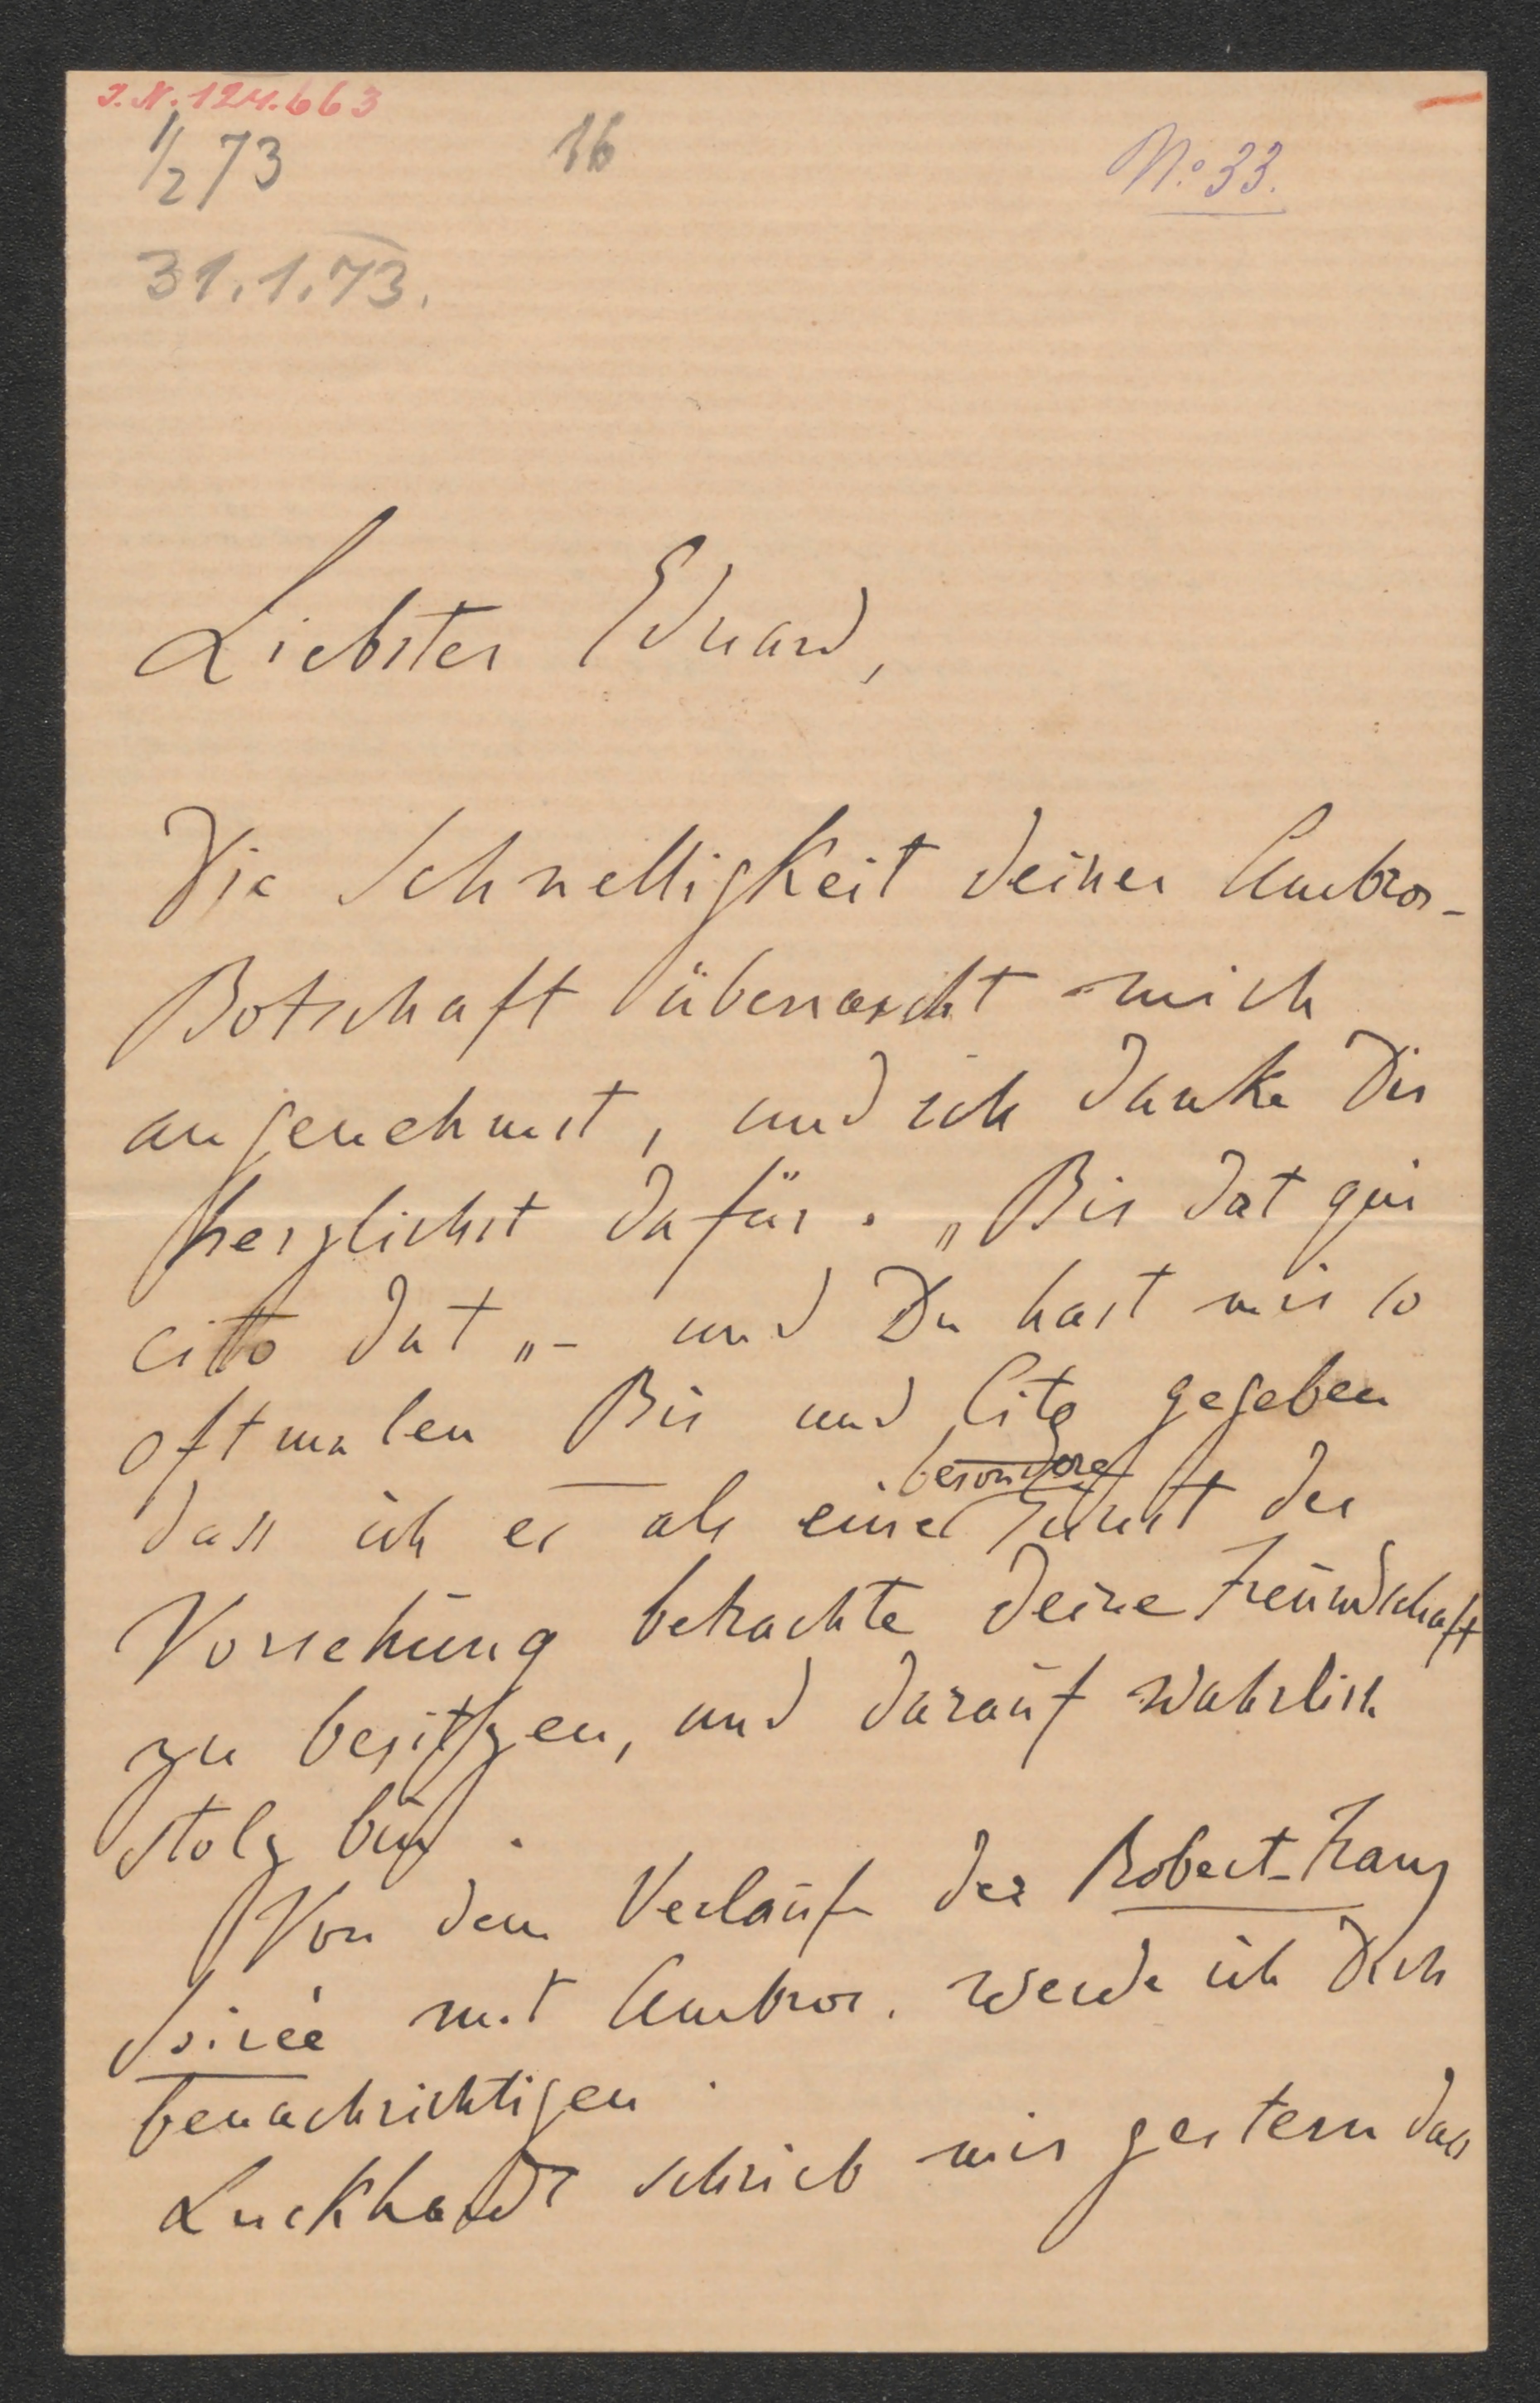 I.N. 124.663
1/2 73 16 No. 33.
31.1.73.
Liebster Eduard,
Die Schnelligkeit deiner Ambros-
Botschaft überrascht mich
angenehmst, und ich danke Dir
herzlichst dafür. „Bis dat qui
cito dat„ – und Du hast mir so
oftmalen Bis und Cito gegeben
dass ich es als eine besondere Gunst der
Vorsehung betrachte deine Freundschaft
zu besitzen, und darauf wahrlich
stolz bin.
Von dem Verlaufe der Robert-Franz
Soirée mit Ambros. werde ich Dich
benachrichtigen.
Luckhardt schrieb mir gestern dass